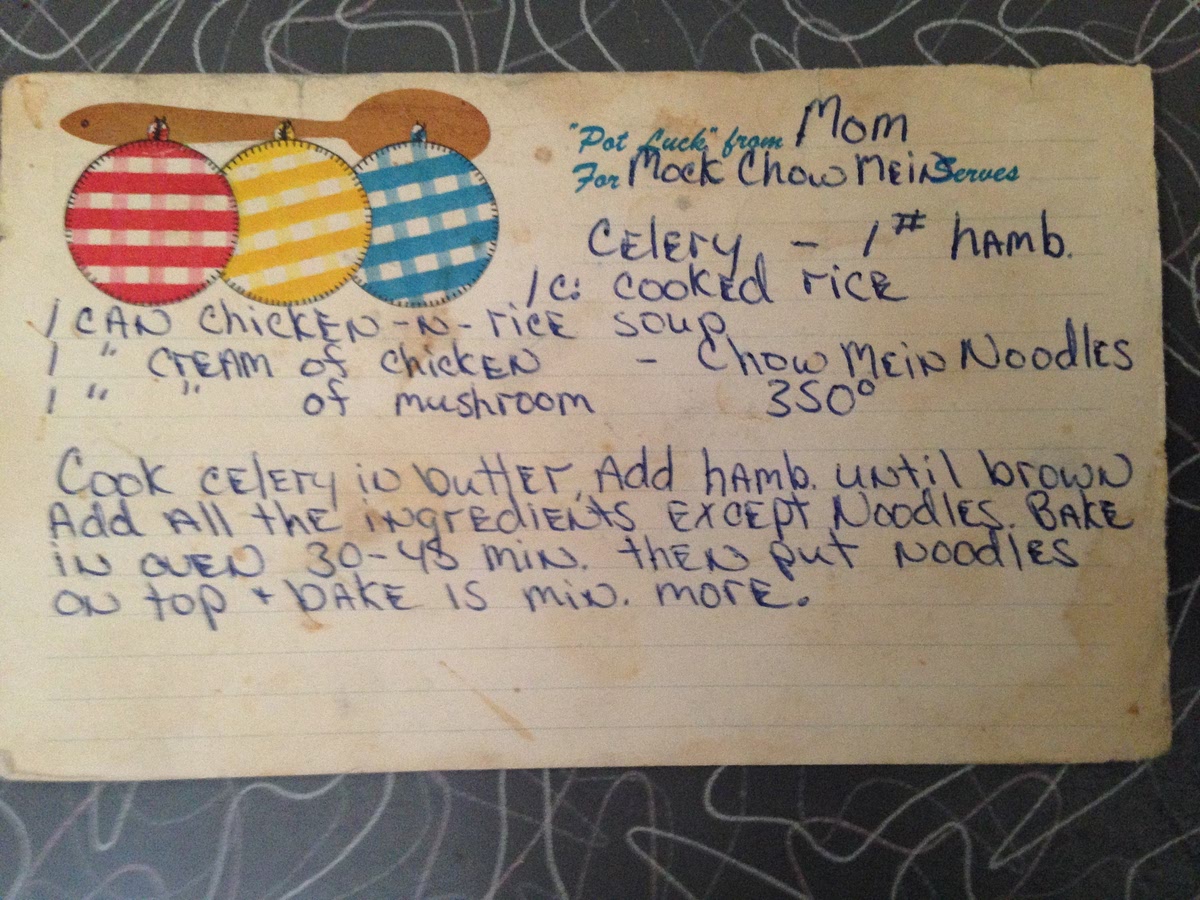 "Pot Luck" from Mom
For Mock Chow Mein Serves
Celery - 1# hamb.
1 c. cooked rice
1 can chicken-n-rice soup
1 " cream of chicken - Chow Mein Noodles
1 " " of mushroom 350°
Cook celery in butter, Add hamb. until brown
Add all the ingredients except Noodles. Bake
in oven 30-45 min. then put noodles
on top + bake 15 min. more.